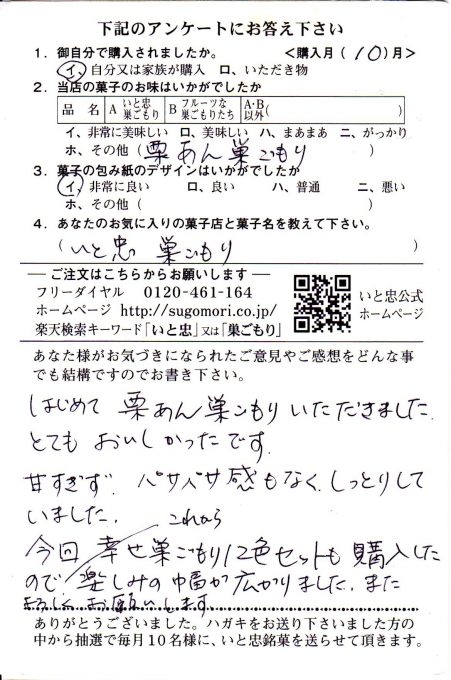 下記のアンケートにお答え下さい
1．御自分で購入されましたか。 ＜購入月（10）月＞
イ、自分又は家族が購入 ロ、いただき物
2．当店の菓子のお味はいかがでしたか
品 名 A いと忠巣ごもり B フルーツな巣ごもりたち A・B以外（ ）
イ、非常に美味しい ロ、美味しい ハ、まあまあ ニ、がっかり
ホ、その他（栗あん巣ごもり
3．菓子の包み紙のデザインはいかがでしたか
イ、非常に良い ロ、良い ハ、普通 ニ、悪い
ホ、その他（ ）
4．あなたのお気に入りの菓子店と菓子名を教えて下さい。
（いと忠 巣ごもり ）
― ご注文はこちらからお願いします ―
フリーダイヤル 0120-461-164
ホームページ http://sugomori.co.jp/
楽天検索キーワード「いと忠」又は「巣ごもり」
いと忠公式
ホームページ
あなた様がお気づきになられたご意見やご感想をどんな事
でも結構ですのでお書き下さい。
はじめて 栗あん巣ごもり いただきました.
とても おいしかったです.
甘すぎず. パサパサ感もなく. しっとりして
いました. これから
今回 幸せ巣ごもり12色セットも購入した
ので 楽しみの幅が広がりました. また
よろしく お願いします.
ありがとうございました。ハガキをお送り下さいました方の
中から抽選で毎月10名様に、いと忠銘菓を送らせて頂きます。